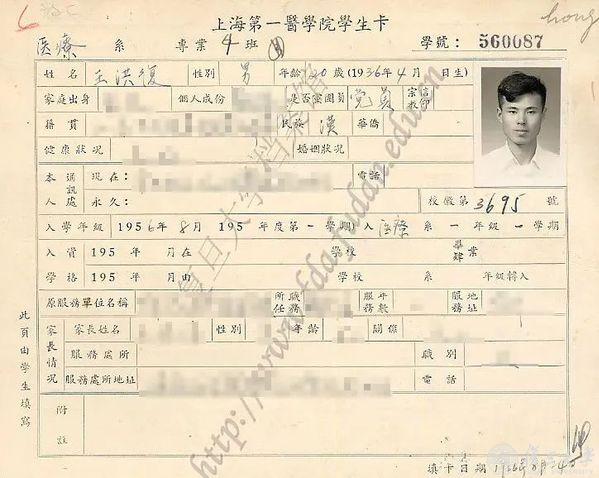 上海第一醫學院學生卡
hong
医療 系 專業 4 班
學號： 560087
姓名 王洪復 性別 男 年齡 20 歲(1936年4月 日生)
家庭出身 個人成份 是否黨團員 党員 宗教信仰
籍貫 民族 漢 華僑
健康狀况 婚姻狀况
本人通訊處 現在： 電話
永久： 校徽第 3695 號
入學年級 1956年8月 195 年度第一學期) 入 医療 系一年級一學期
入資 195 年 月在 學校 畢肄業
學格 195 年 月由 學校 系 年級轉入
原服務單位名稱 所任職務 服務年數 服務地址
家長情况 家長姓名 性別 年齡 關係
服務處所 職別
服務處所地址 電話
附註
此頁由學生填寫
填卡日期
復旦大学档案馆
http://www.fda.fudan.edu.cn